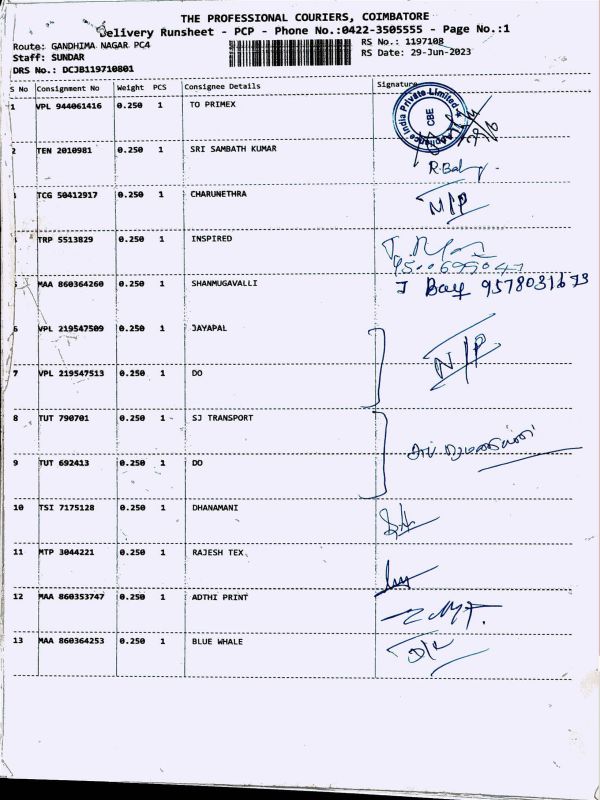 THE PROFESSIONAL COURIERS, COIMBATORE
Delivery Runsheet - PCP - Phone No.:0422-3505555 - Page No.:1
Route: GANDHIMA NAGAR PC4 RS No.: 1197108
Staff: SUNDAR RS Date: 29-Jun-2023
DRS No.: DCJB119710801
S No Consignment No Weight PCS Consignee Details Signature
1 VPL 944061416 0.250 1 TO PRIMEX
India Private Limited CBE
2 TEN 2010981 0.250 1 SRI SAMBATH KUMAR
TCG 50412917 0.250 1 CHARUNETHRA N/P
TRP 5513829 0.250 1 INSPIRED
5 MAA 860364260 0.250 1 SHANMUGAVALLI J 9578031673
6 VPL 219547509 0.250 1 JAYAPAL N/P
7 VPL 219547513 0.250 1 DO
8 TUT 790701 0.250 1 SJ TRANSPORT
9 TUT 692413 0.250 1 DO
10 TSI 7175128 0.250 1 DHANAMANI
11 MTP 3044221 0.250 1 RAJESH TEX
12 MAA 860353747 0.250 1 ADTHI PRINT
13 MAA 860364253 0.250 1 BLUE WHALE D/L